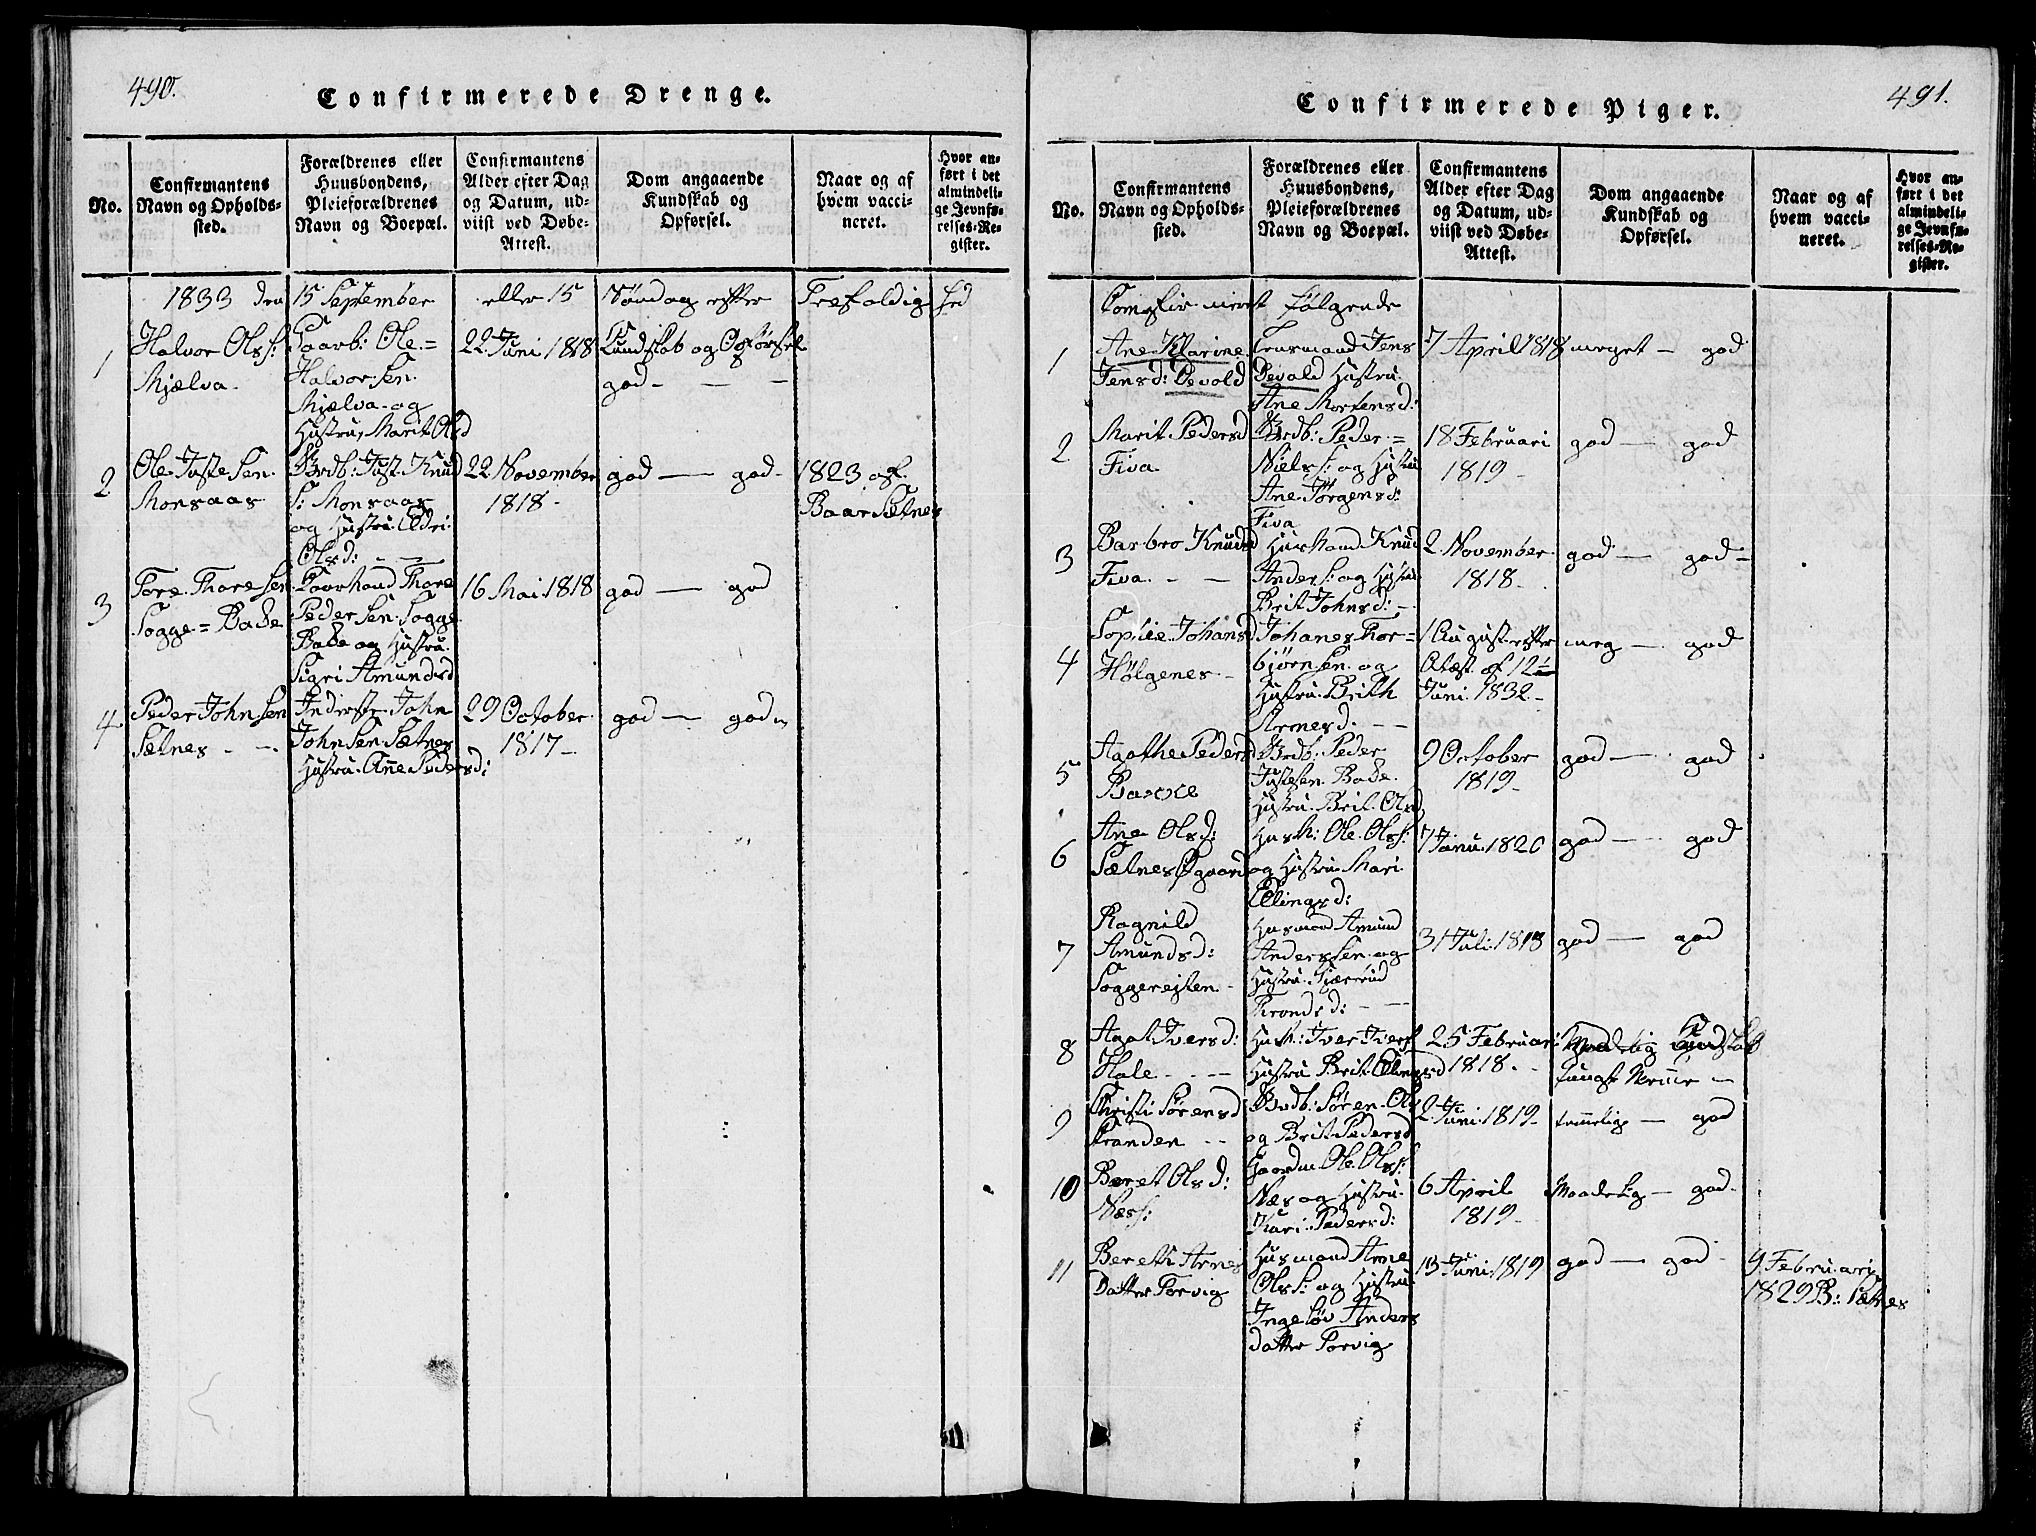 490.
Confirmerede Drenge.
No.
Confirmantens
Navn og Opholds-
sted.
Forældrenes eller
Huusbondens,
Pleieforældrenes
Navn og Boepæl.
Confirmantens
Alder efter Dag
og Datum, ud-
viist ved Døbe-
Attest.
Dom angaaende
Kundskab og
Opførsel.
Naar og af
hvem vacci-
neret.
Hvor an-
ført i det
almindeli-
ge Jevnfø-
relses-Re-
gister.
1833 den 15 September eller 15 Søndag efter Trefoldig hed
1
Halvor Olss:
Mjælva
Gaarb: Ole =
Halvor sen
Mjælva og
Hustru, Marit Olsd
22 Juni 1818
Kundskab og Opførsel
god - - -
2
Ole Juste sen
Monsaas
Brdb: Just Knud
S: Monsaas
og Hustru Eldri
Olsd:
22 November
1818 -
god - god -
1823 af
Baar Sætnes
3
Tore Thore sen
Sogge = Bade
Gaarmand Thore
Peder sen Sogge
Bade og Hustru
Sigri Amundsd
16 Mai 1818
god - god
4
Peder John sen
Sætnes - -
Inderste John
John sen Sætnes
Hustru Ane Pedersd:
29 October
1817 -
god - god
491.
Confirmerede Piger.
No.
Confirmantens
Navn og Opholds-
sted.
Forældrenes eller
Huusbondens,
Pleieforældrenes
Navn og Boepæl.
Confirmantens
Alder efter Dag
og Datum, ud-
viist ved Døbe-
Attest.
Dom angaaende
Kundskab og
Opførsel.
Naar og af
hvem vacci-
neret.
Hvor an-
ført i det
almindeli-
ge Jevnfø-
relses-Re-
gister.
følgende
1
Ane Marine
Jensd: Devold
Lensmand Jens
Devold Hustru
Ane Mortensd:
7 April 1818
meget - god
2
Marit Pedersd
Fiva
Brdb: Peder =
Niels s: og Hustru
Ane Jørgensd:
Fiva
18 Februari
1819 -
god - god
3
Barbro Knudsd
Fiva - -
Husmand Knud
Anders: og Hustru
Brit Johnsd: -
2 November
1818 -
god - god -
4
Sophie Johansd
Hølgenes -
Johanes Tor =
bjørn sen og
Hustru Brith
Arnesd: - -
1 August efter
Atæst af 12te
Juni 1832 -
meg - god
5
Agathe Pedersd
Brdb: Peder
Justesen Bade
Hustru Brit Olsd
9 October
1819 -
god - god
6
Ane Olsd:
Sætnes Øgaard
Husm: Ole Olss:
og Hustru Mari
Ellingsd:
7 Janu: 1820
god - god
7
Ragnild
Amundsd:
Soggerejten -
Husmand Amund
Anderssen og
Hustru Gjærtrud
Trondsd: - -
31 Juli 1818
god - god
8
Agat Iversd:
Hale - - -
Husm: Iver Ivers
Hustru Brit Ellingsd
25 Februari
1818 -
Maadelig Kundskab
9
Christi Sørensd
Stranden - -
Brdb: Søren Ols
og Brit Pedersd
2 Juni 1819 -
temelige - god
10
Beret Olsd:
Næss:
Gaardm Ole Olss:
Næs og Hustru
Kari Pedersd:
6 April
1819 -
Maadelig - god -
11
Bereth Arnes
Datter Torvig
Husmand Arne
Olss: og Hustru
Ingeløv Anders
datter Torvig
13 Juni 1819
god - god -
9 Februari
1829 B: Sætnes